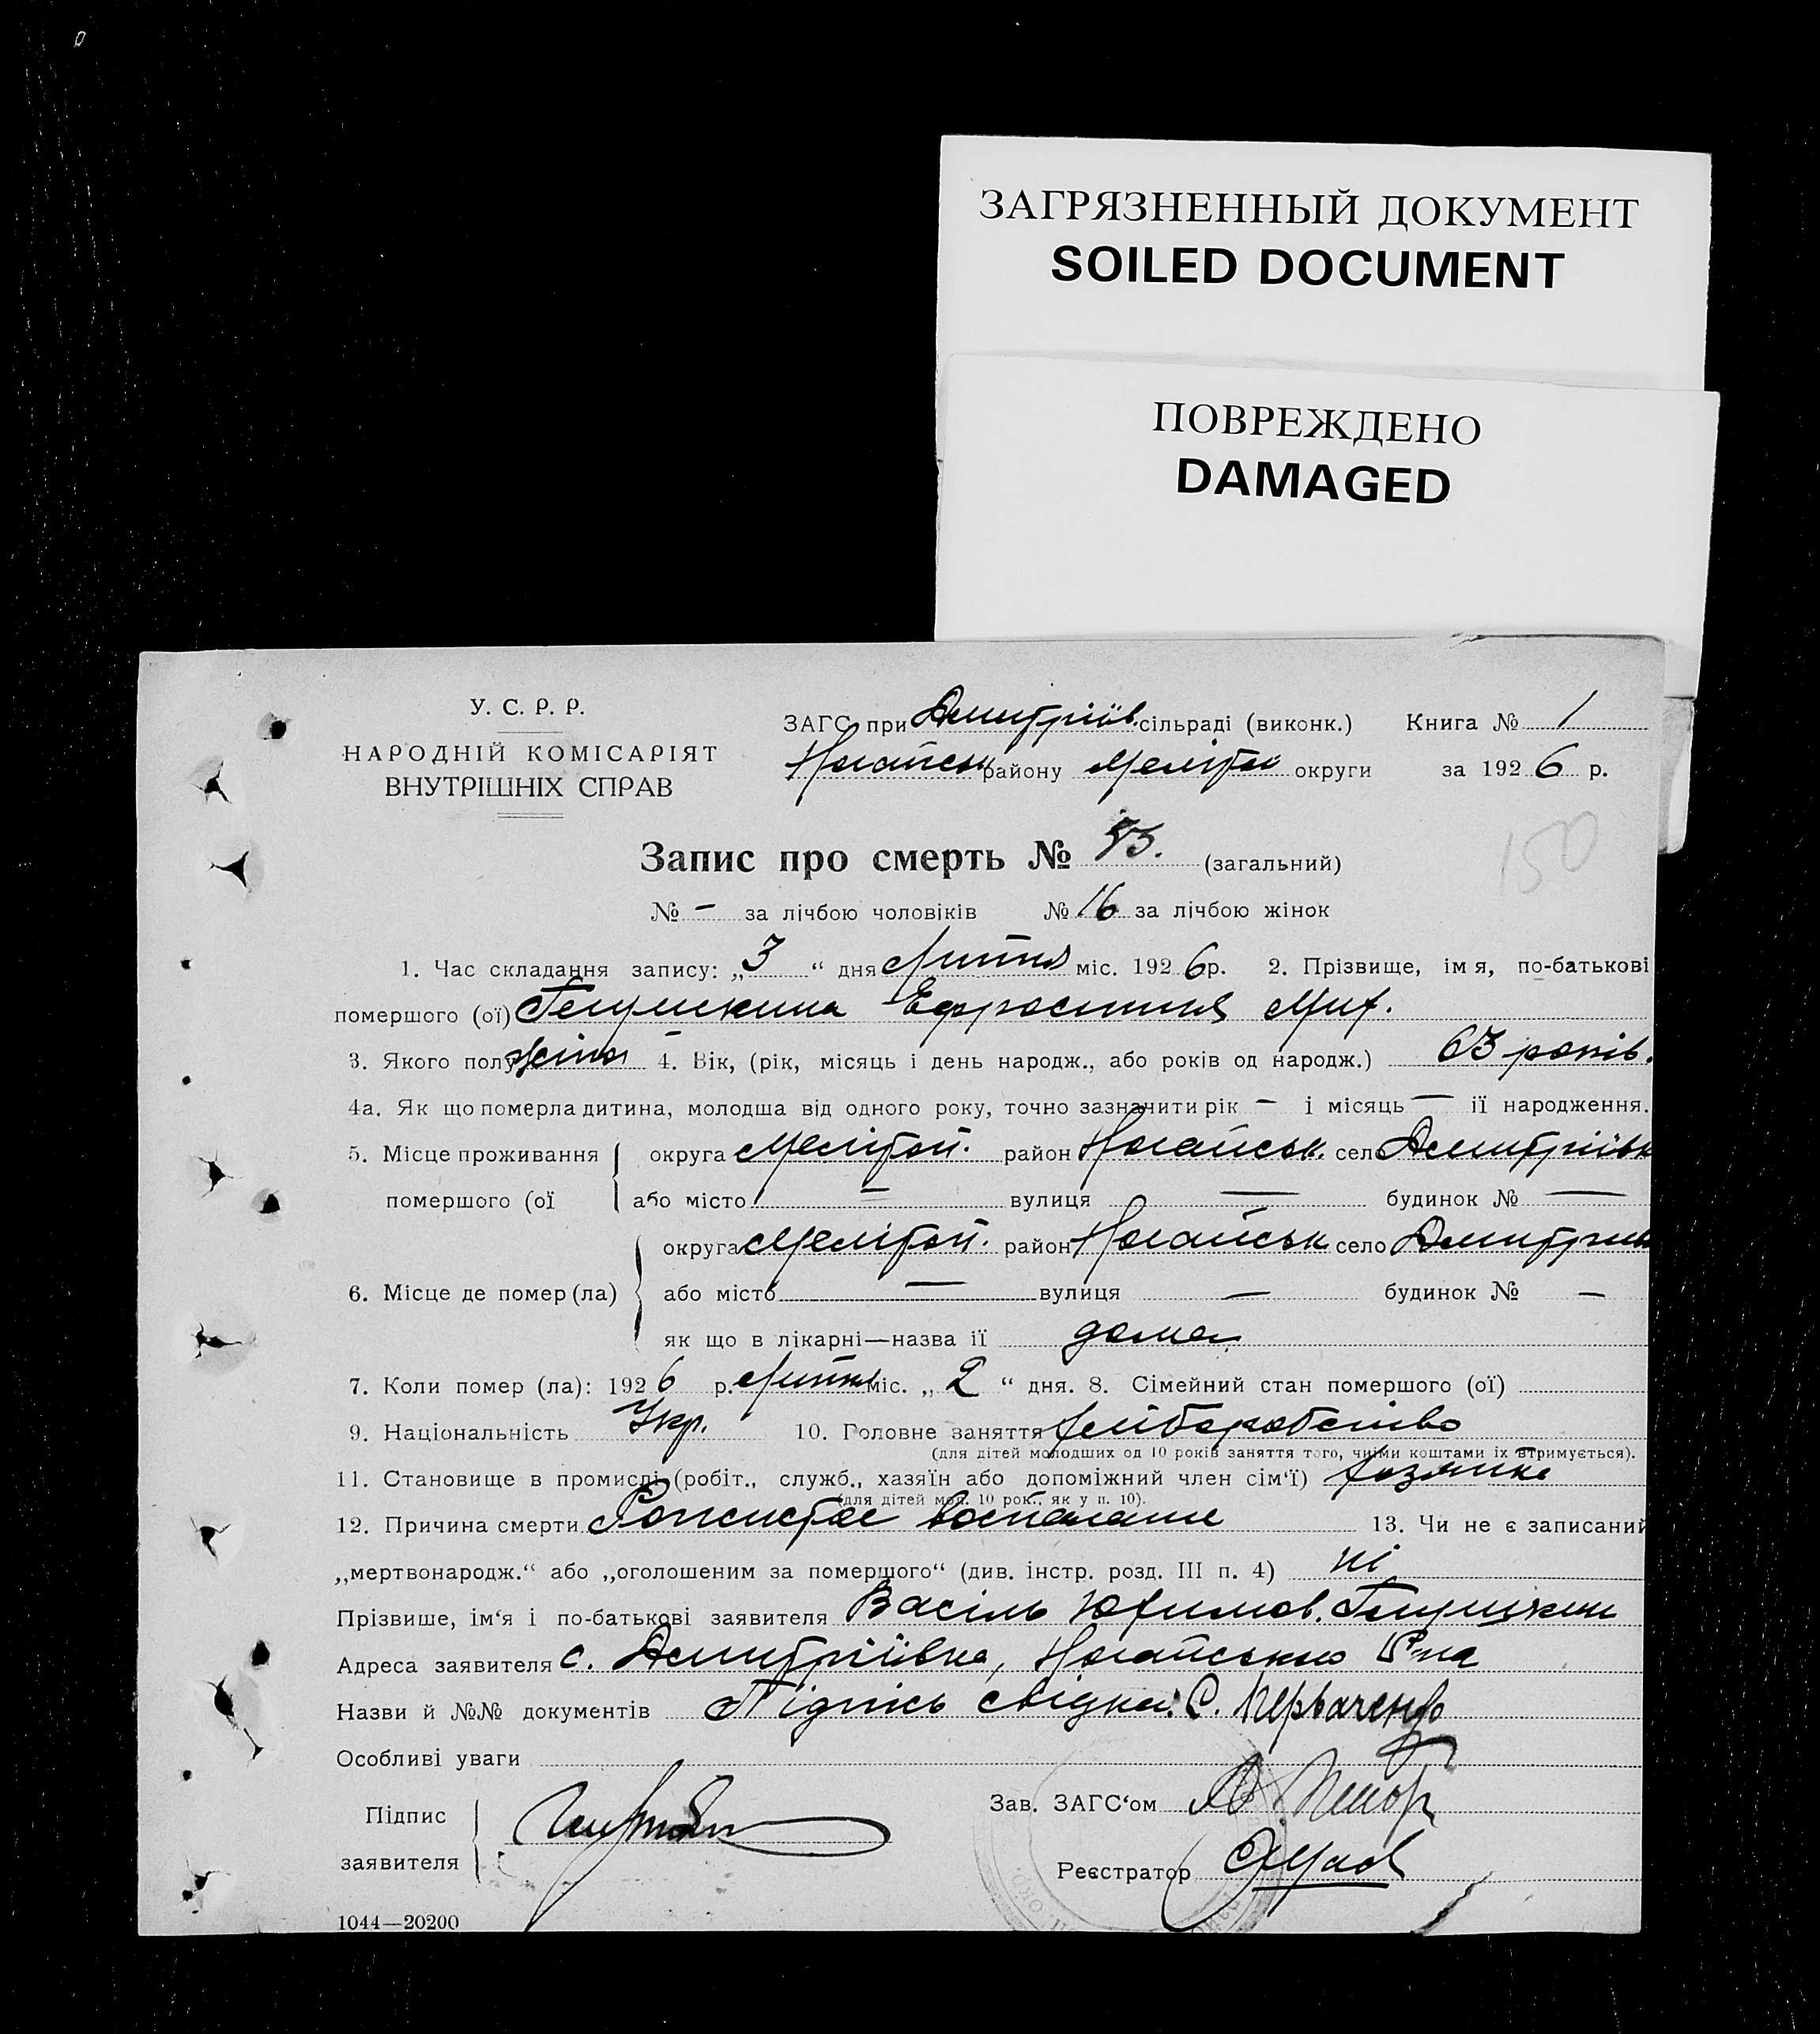 ЗАГРЯЗНЕННЫЙ ДОКУМЕНТ
SOILED DOCUMENT
ПОВРЕЖДЕНО
DAMAGED
У. С. Р. Р.
НАРОДНІЙ КОМІСАРІЯТ
ВНУТРІШНІХ СПРАВ
ЗАГС при Дмитріїв. сільраді (виконк.) Книга № 1
Ногайськ району Меліто округи за 1926 р.
Запис про смерть № (загальний)
150
№ – за лічбою чоловіків № 16 за лічбою жінок
1. Час складання запису: „3“ дня Липня міс. 1926 р. 2. Прізвище, імя, по-батькові
помершого (ої) Ефросиния Мих.
3. Якого полу жіноч 4. Вік, (рік, місяць і день народж., або років од народж.) 63 років.
4а. Як що померла дитина, молодша від одного року, точно зазначити рік – і місяць — ії народження.
5. Місце проживання округа Мелітоп. район Ногайськ. село Дмитріївк
помершого (ої або місто — вулиця — будинок № —
округа Мелітоп. район Ногайськ село Дмитрив
6. Місце де помер (ла) або місто — вулиця — будинок № —
як що в лікарні—назва ії дома
7. Коли помер (ла): 1926 р. Липня міс. „2“ дня. 8. Сімейний стан помершого (ої)
9. Національність Укр. 10. Головне заняття хлібробство
(для дітей молодших од 10 років заняття того, чиїми коштами їх втримується).
11. Становище в промислі (робіт., служб., хазяїн або допоміжний член сім‘ї) хозяика
(для дітей мол. 10 рок., як у п. 10).
12. Причина смерти Рожистое воспаление 13. Чи не є записаний
„мертвонародж.“ або „оголошеним за помершого“ (див. інстр. розд. III п. 4) ні
Прізвише, ім‘я і по-батькові заявителя Васіль Юхимов.
Адреса заявителя с. Дмитріївка, Ногайсько Р-на
Назви й №№ документів Підпісь свідка: С.
Особливі уваги
Підпис
заявителя
Зав. ЗАГС‘ом
Реєстратор
1044—20200